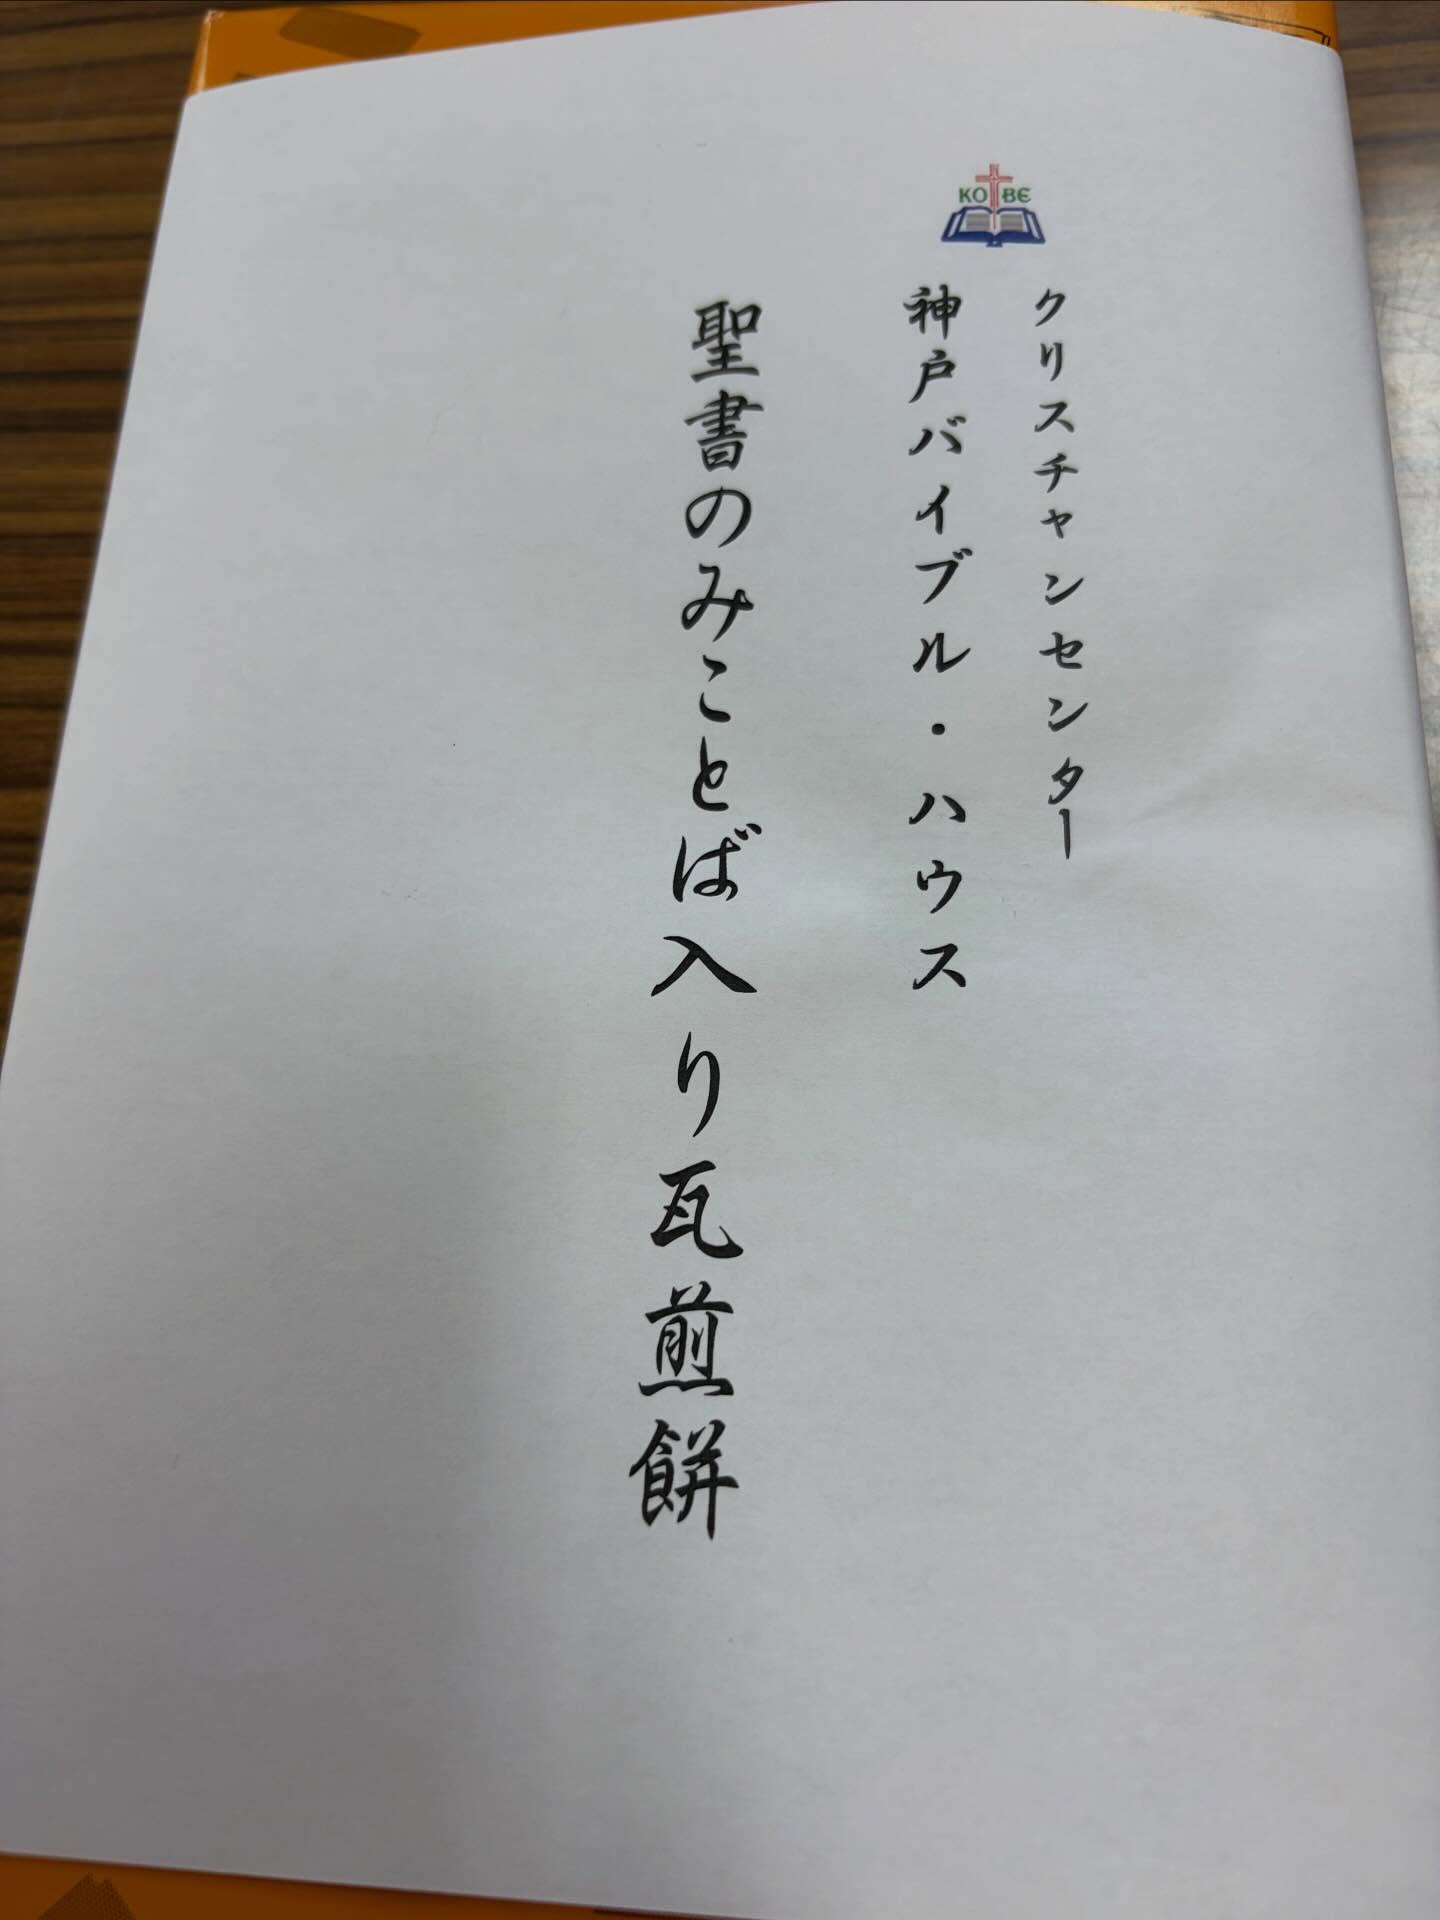 KOBE
クリスチャンセンター
神戸バイブル・ハウス
聖書のみことば入り瓦煎餅